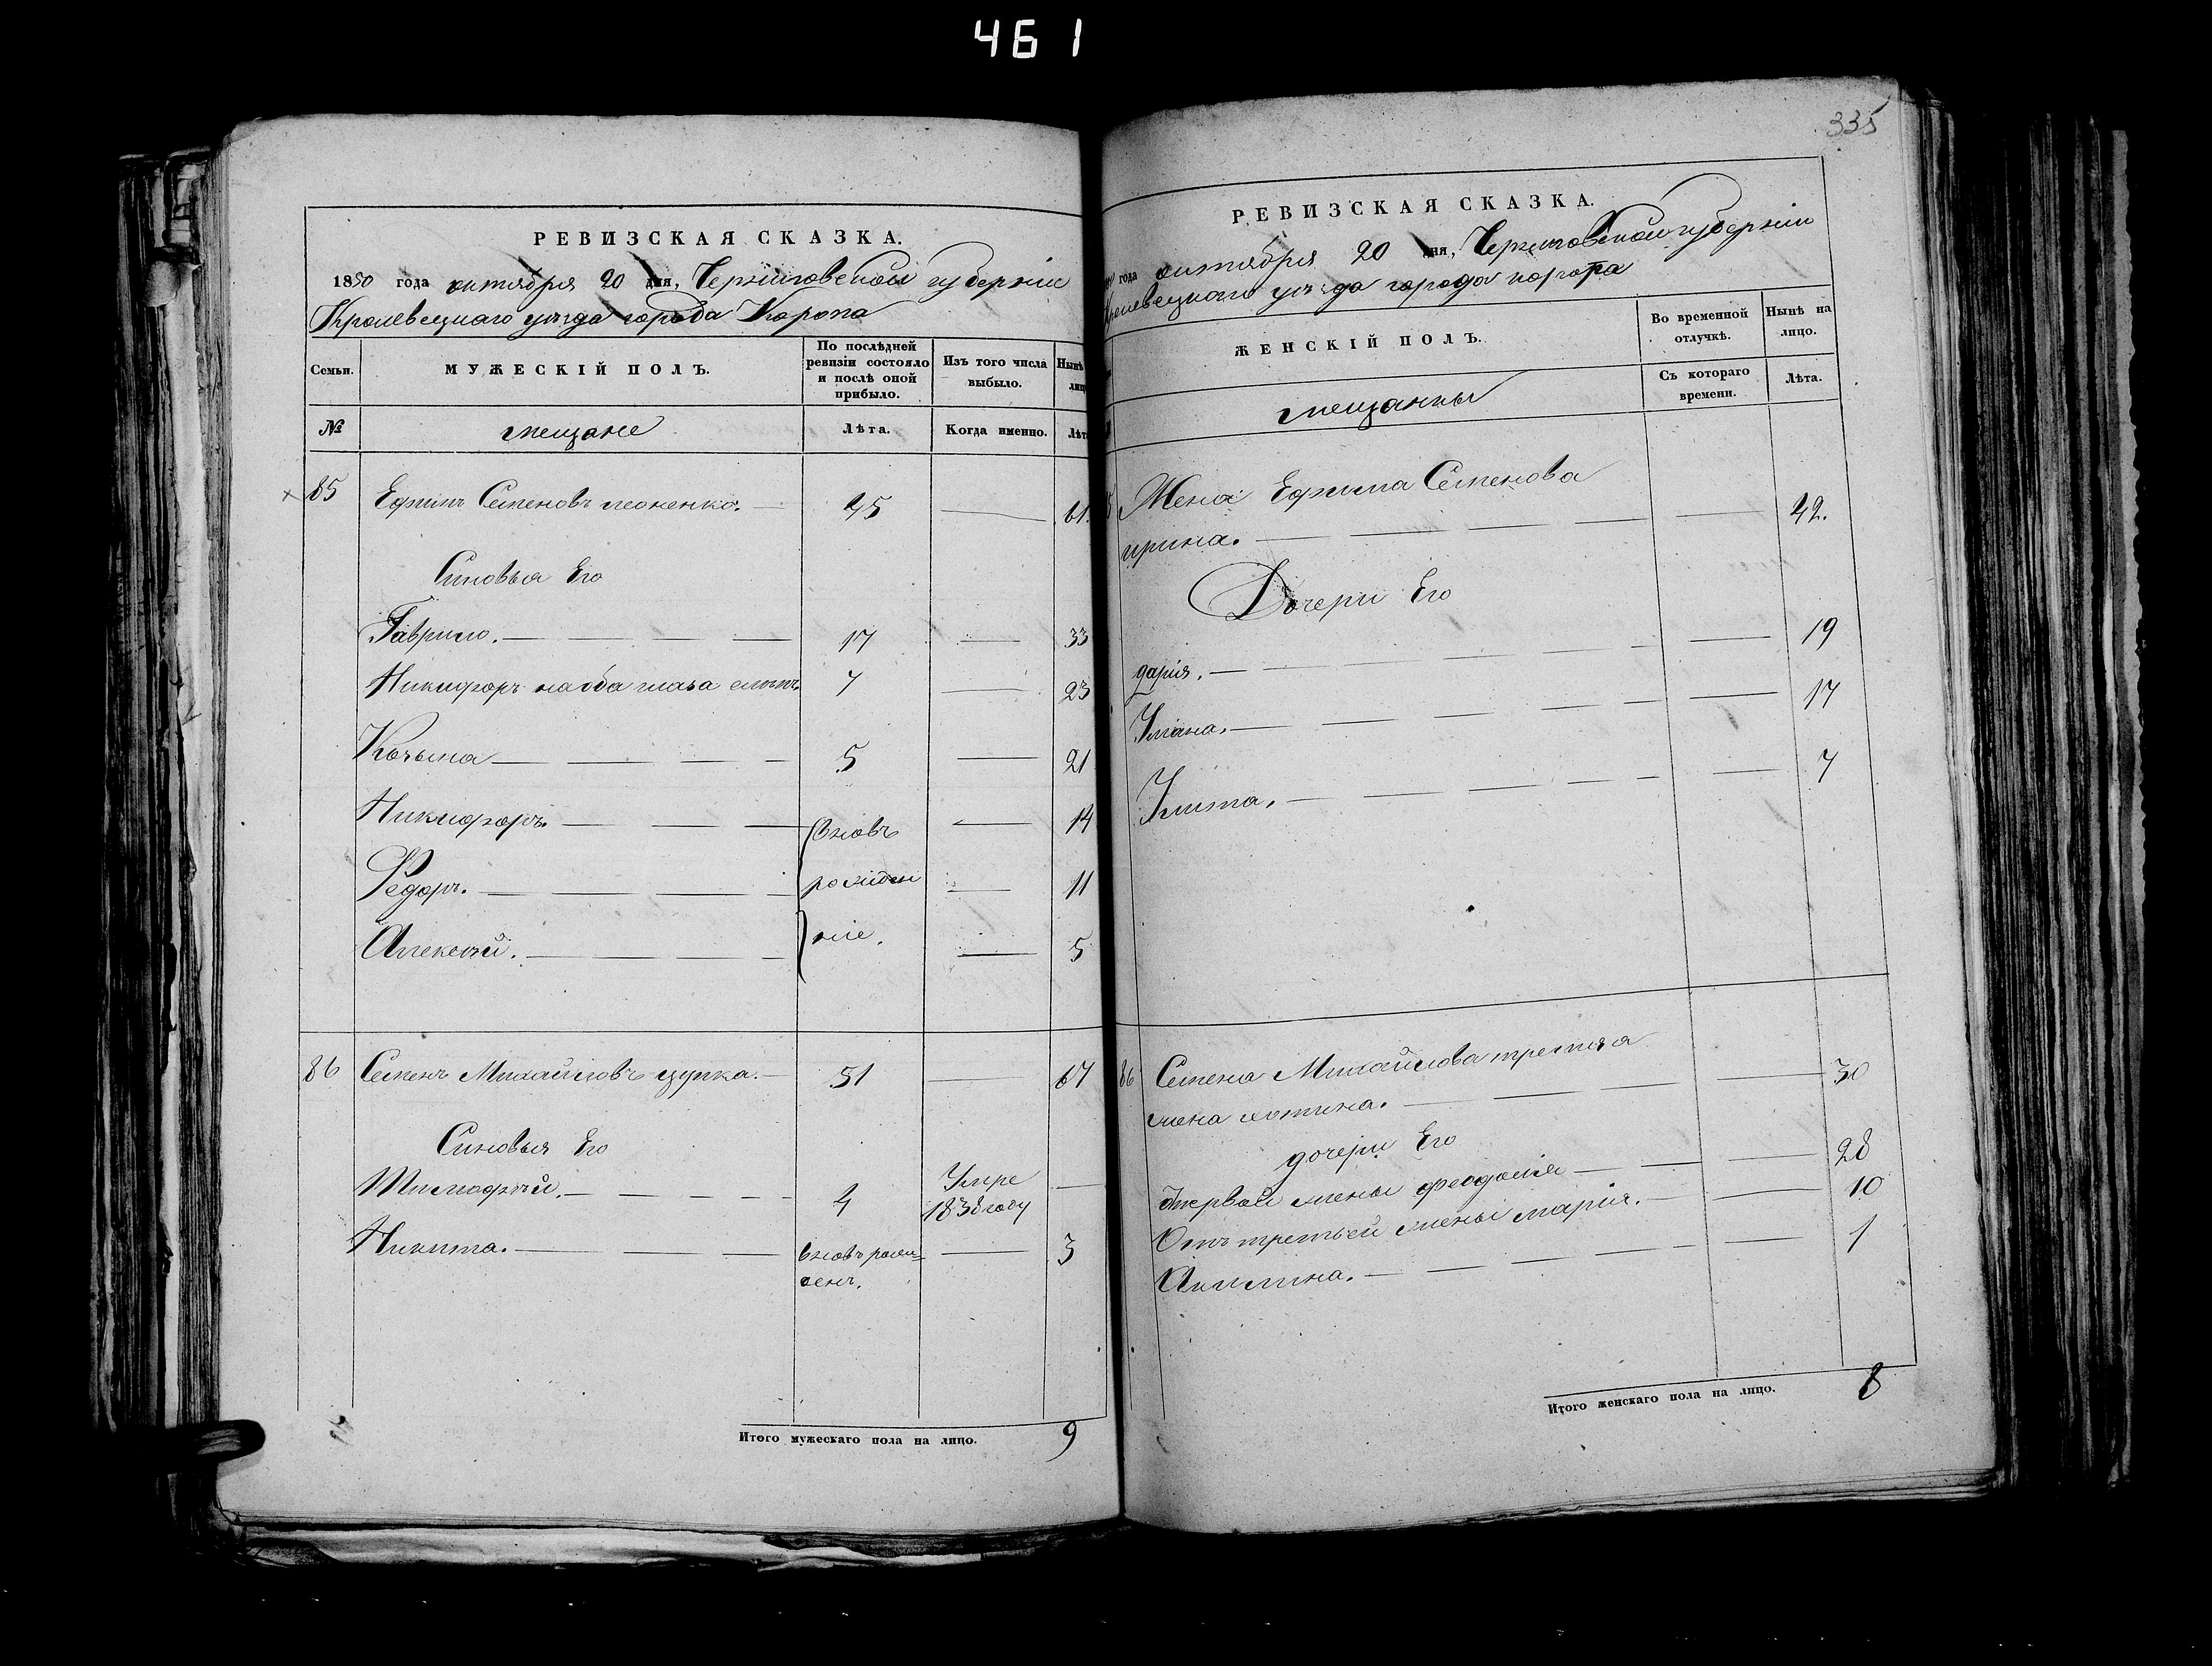 461
РЕВИЗСКАЯ СКАЗКА.
1850 года октября 20 дня, Черниговской губернии
Кролевецкаго уѣзда города Коропа
Семьи.
МУЖЕСКІЙ ПОЛЪ.
По послѣдней ревизіи состояло и послѣ оной прибыло.
Изъ того числа выбыло.
Нынѣ
лиц
№
мещане
Лѣта.
Когда именно.
Лѣт
85 Ефимъ Семеновъ 45 — 61.
Синовья Его
Гаврило. — 17 — 33
Никифоръ на оба глаза слѣпъ. 7 — 23
Козьма — 5 — 21
Никифоръ. — вновь — 14
Федоръ. — рожден — 11
Алексѣй. — ніе. — 5
86 Семенъ Михайловъ цупка. — 51 — 67
Синовья Его
Тимофѣй. — 4 Умре 1838 году —
Никита. — вновь рож= денъ. — 3
Итого мужескаго пола на лицо. 9
335
РЕВИЗСКАЯ СКАЗКА.
года октября 20 дня, Черниговской губерніи
Кролевецкаго уѣзда города коропа
ЖЕНСКІЙ ПОЛЪ.
Во временной отлучкѣ.
Нынѣ на лицо.
мещанки
Съ котораго времени.
Лѣта.
Жена Ефима Семенова
ирина. — 42.
Дочери Его
дарія. — 19
Уліана. — 17
Улита. — 7
86 Семена Михайлова третяя
жена — 30
дочери Его
первой жены феодосія — 28
Отъ третьей жены марія. — 10
Акилина. — 1
Итого женскаго пола на лицо. 8